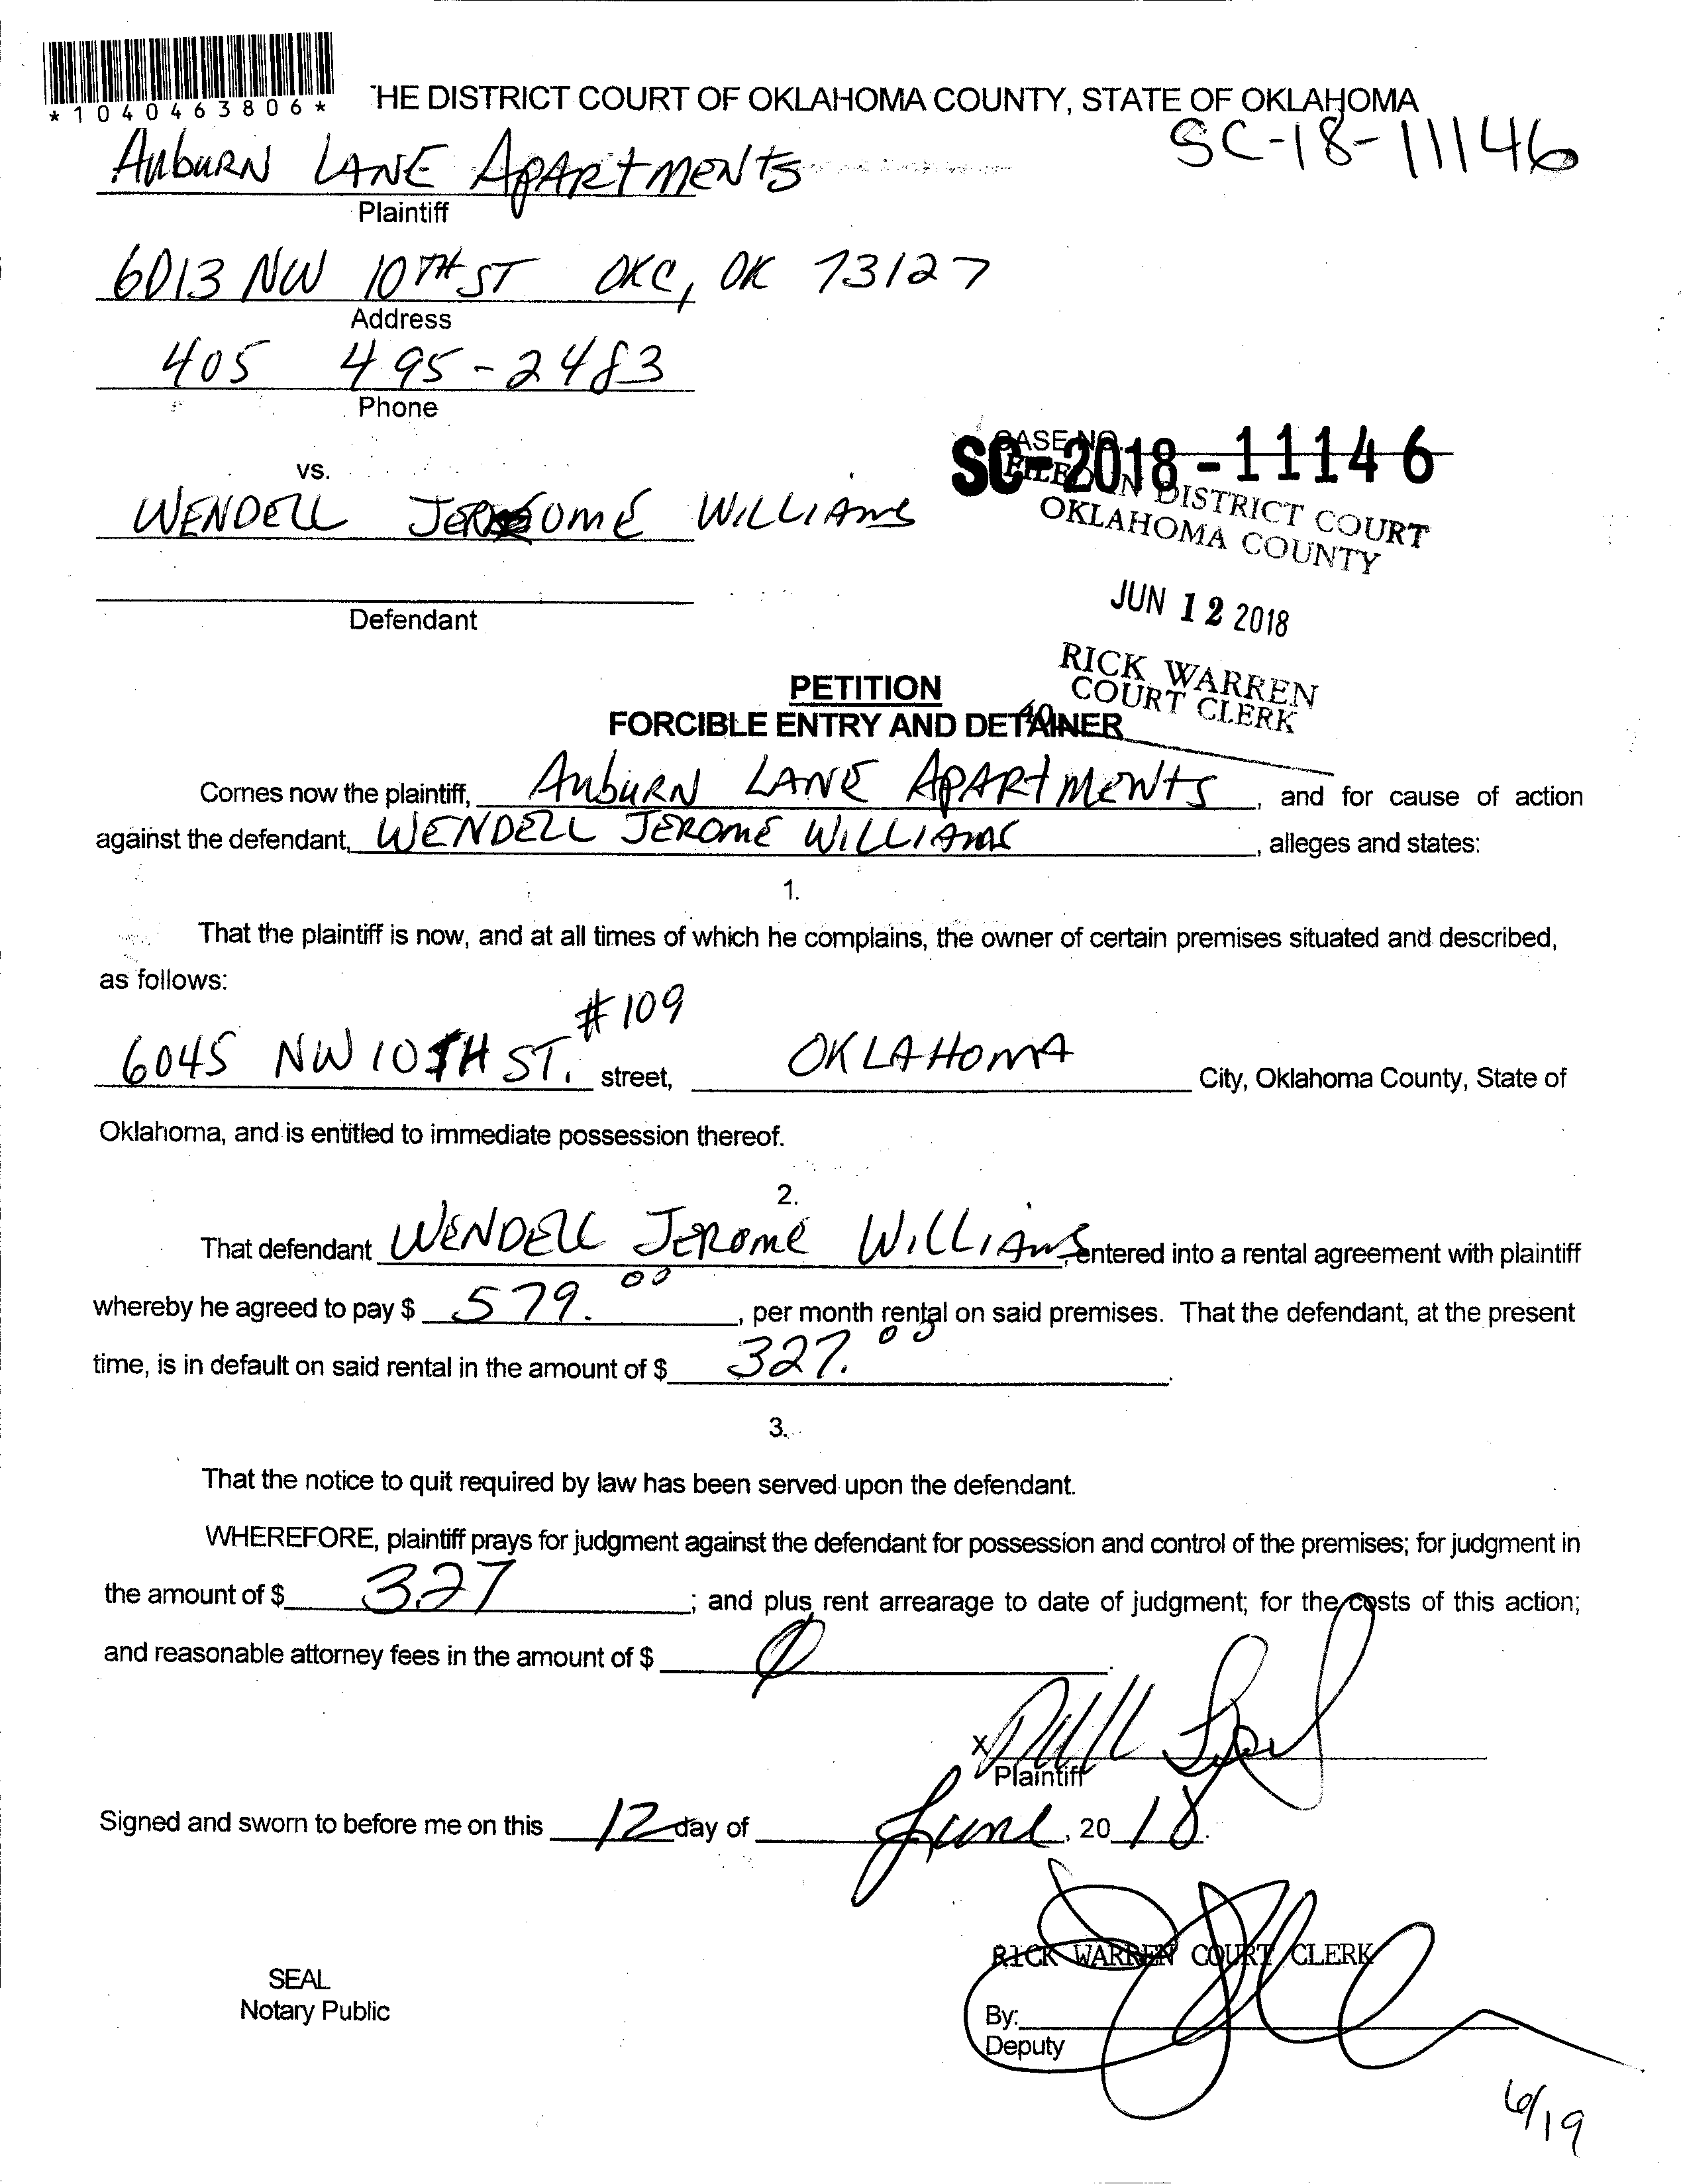 *1040463806*
THE DISTRICT COURT OF OKLAHOMA COUNTY, STATE OF OKLAHOMA
SC-18-11146
AUBURN LANE APARTMENTS
Plaintiff
6013 NW 10TH ST OKC, OK 73127
Address
405 495-2483
Phone
vs.
CASE NO.
SC-2018-11146
FILED IN DISTRICT COURT
OKLAHOMA COUNTY
WENDELL JEROME WILLIAMS
JUN 12 2018
Defendant
RICK WARREN
COURT CLERK
40
PETITION
FORCIBLE ENTRY AND DETAINER
Comes now the plaintiff, AUBURN LANE APARTMENTS, and for cause of action
against the defendant, WENDELL JEROME WILLIAMS, alleges and states:
1.
That the plaintiff is now, and at all times of which he complains, the owner of certain premises situated and described,
as follows:
#109
6045 NW 10TH ST. street, OKLAHOMA City, Oklahoma County, State of
Oklahoma, and is entitled to immediate possession thereof.
2.
That defendant WENDELL JEROME WILLIAMS, entered into a rental agreement with plaintiff
whereby he agreed to pay $ 579.00, per month rental on said premises. That the defendant, at the present
time, is in default on said rental in the amount of $ 327.00.
3.
That the notice to quit required by law has been served upon the defendant.
WHEREFORE, plaintiff prays for judgment against the defendant for possession and control of the premises; for judgment in
the amount of $ 327; and plus rent arrearage to date of judgment; for the costs of this action;
and reasonable attorney fees in the amount of $ 0.
X
Plaintiff
Signed and sworn to before me on this 12 day of June, 2018.
RICK WARREN COURT CLERK
SEAL
Notary Public
By:
Deputy
6/19